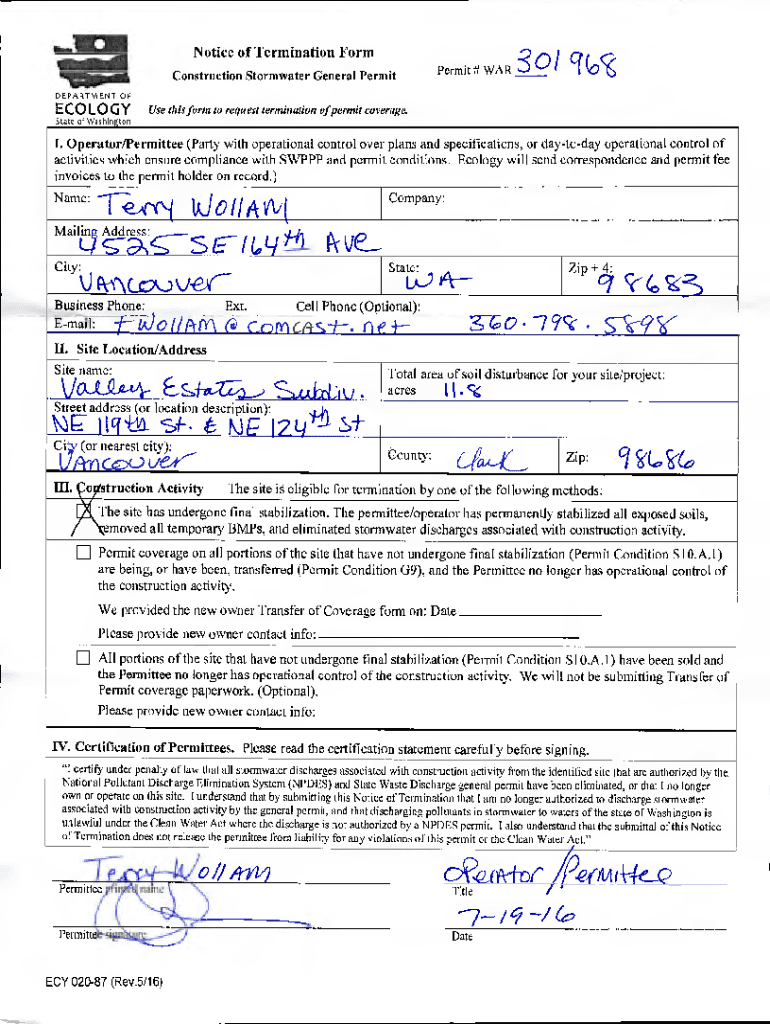 Notice of Termination Form
Construction Stormwater General Permit
Permit # WAR 301968
DEPARTMENT OF
ECOLOGY
State of Washington
Use this form to request termination of permit coverage.
I. Operator/Permittee (Party with operational control over plans and specifications, or day-to-day operational control of
activities which ensure compliance with SWPPP and permit conditions. Ecology will send correspondence and permit fee
invoices to the permit holder on record.)
Name: Terry WollAM Company:
Mailing Address: 4525 SE 164th Ave
City: VANCouver State: WA Zip + 4: 98683
Business Phone: Ext. Cell Phone (Optional): 360.798.5898
E-mail: tWollAM@comcast.net
II. Site Location/Address
Site name: Valley Estates Subdiv. Total area of soil disturbance for your site/project:
acres 11.8
Street address (or location description):
NE 119th St. & NE 124th St
City (or nearest city): VANCouver County: Clark Zip: 98686
III. Construction Activity The site is eligible for termination by one of the following methods:
The site has undergone final stabilization. The permittee/operator has permanently stabilized all exposed soils,
removed all temporary BMPs, and eliminated stormwater discharges associated with construction activity.
Permit coverage on all portions of the site that have not undergone final stabilization (Permit Condition S10.A.1)
are being, or have been, transferred (Permit Condition G9), and the Permittee no longer has operational control of
the construction activity.
We provided the new owner Transfer of Coverage form on: Date
Please provide new owner contact info:
All portions of the site that have not undergone final stabilization (Permit Condition S10.A.1) have been sold and
the Permittee no longer has operational control of the construction activity. We will not be submitting Transfer of
Permit coverage paperwork. (Optional).
Please provide new owner contact info:
IV. Certification of Permittees. Please read the certification statement carefully before signing.
"I certify under penalty of law that all stormwater discharges associated with construction activity from the identified site that are authorized by the
National Pollutant Discharge Elimination System (NPDES) and State Waste Discharge general permit have been eliminated, or that I no longer
own or operate on this site. I understand that by submitting this Notice of Termination that I am no longer authorized to discharge stormwater
associated with construction activity by the general permit, and that discharging pollutants in stormwater to waters of the state of Washington is
unlawful under the Clean Water Act where the discharge is not authorized by a NPDES permit. I also understand that the submittal of this Notice
of Termination does not release the permittee from liability for any violations of this permit or the Clean Water Act."
Terry WollAM Operator/Permittee
Permittee printed name Title
7-19-16
Permittee signature Date
ECY 020-87 (Rev.5/16)